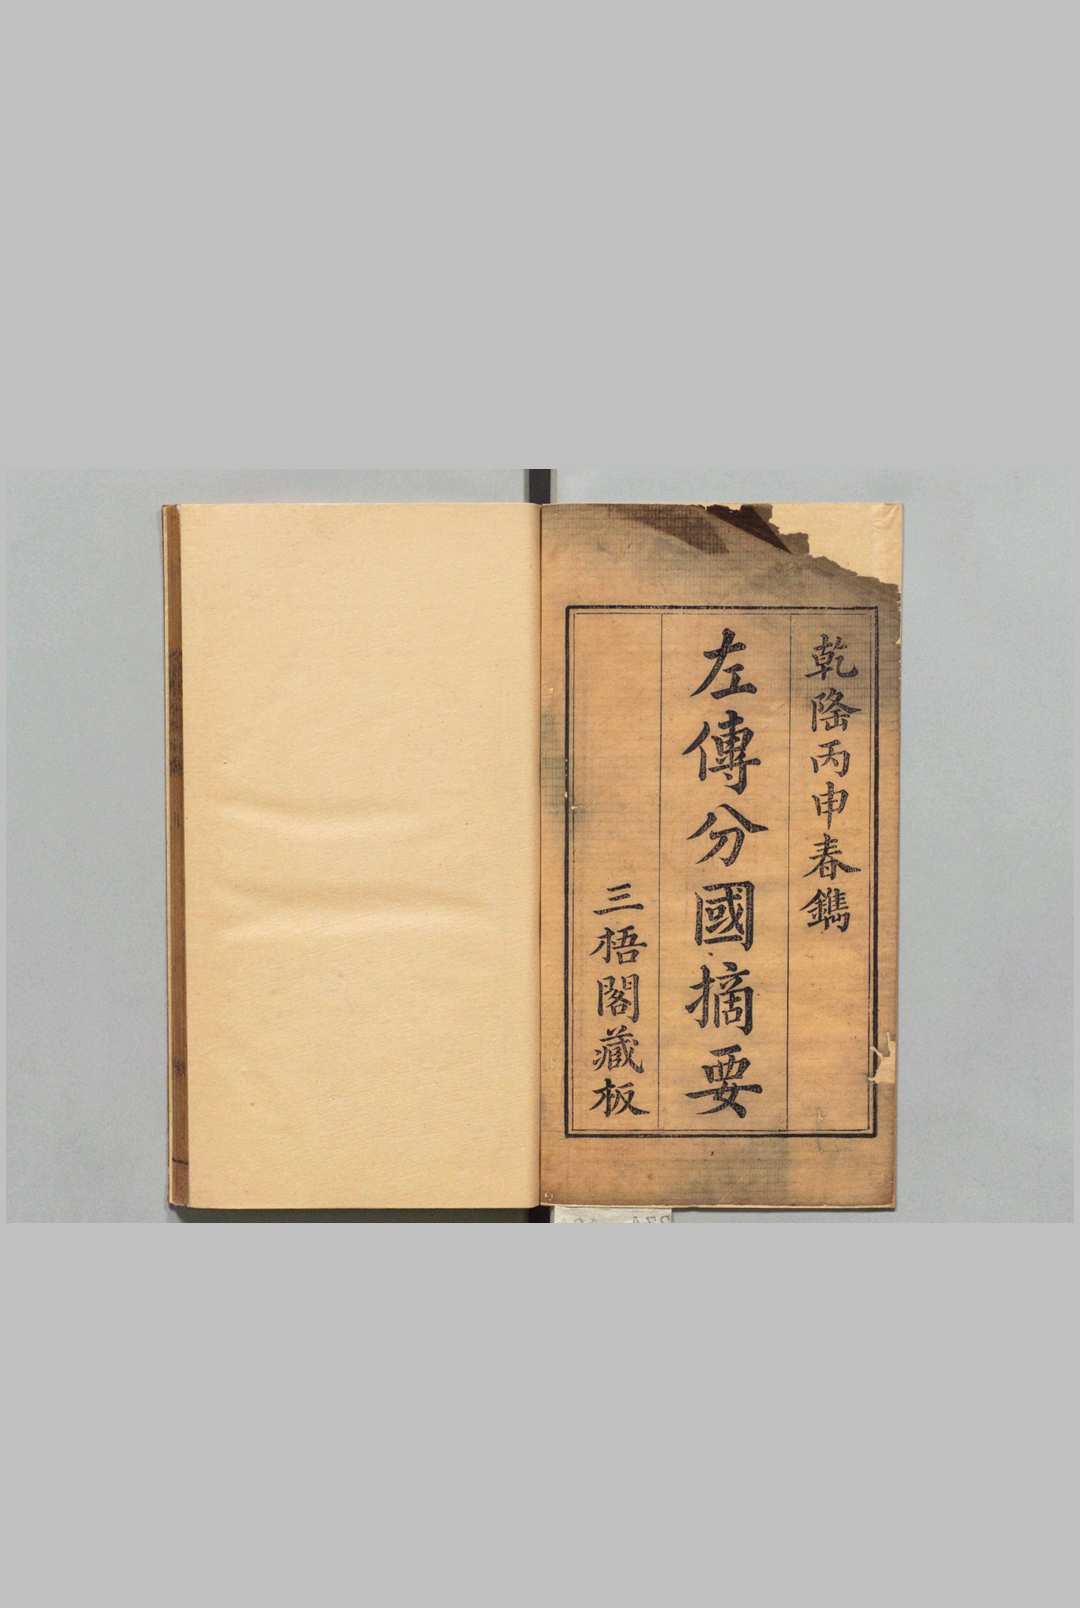 乾隆丙申春鐫
左傳分國摘要
三梧閣藏板